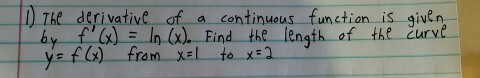 1) The derivative of a continuous function is given
by f'(x) = ln (x). Find the length of the curve
y = f(x) from x=1 to x=2